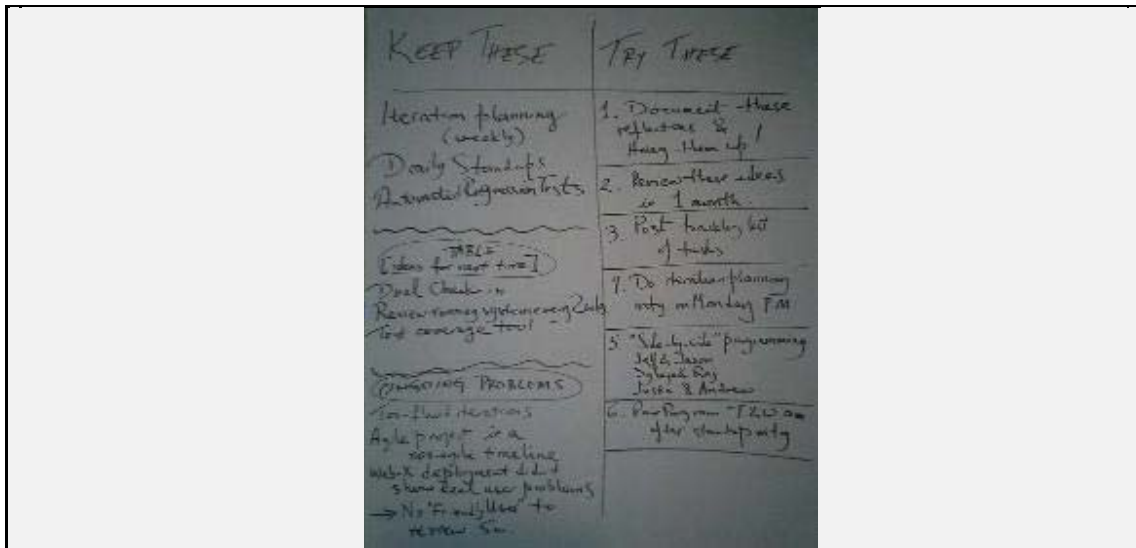 KEEP THESE
Iteration planning
(weekly)
Daily Standups
Automated Regression Tests
TABLE
[ideas for next time]
Dual Check in
Review running system every 2 wks
Test coverage tool
ONGOING PROBLEMS
Too-fluid iterations
Agile project in a
non-agile timeline
Web-X deployment
show real user problems
→ No "Friendly User" to
review
TRY THESE
1. Document these
reflections &
Hang them up!
2. Review these ideas
in 1 month
3. Post backlog list
of tasks
4. Do iteration planning
mtg on Monday PM
5 "Side-by-side" programming
Jeff & Jason
& Ray
Justin & Andrew
6. Pair Program
after standup mtg